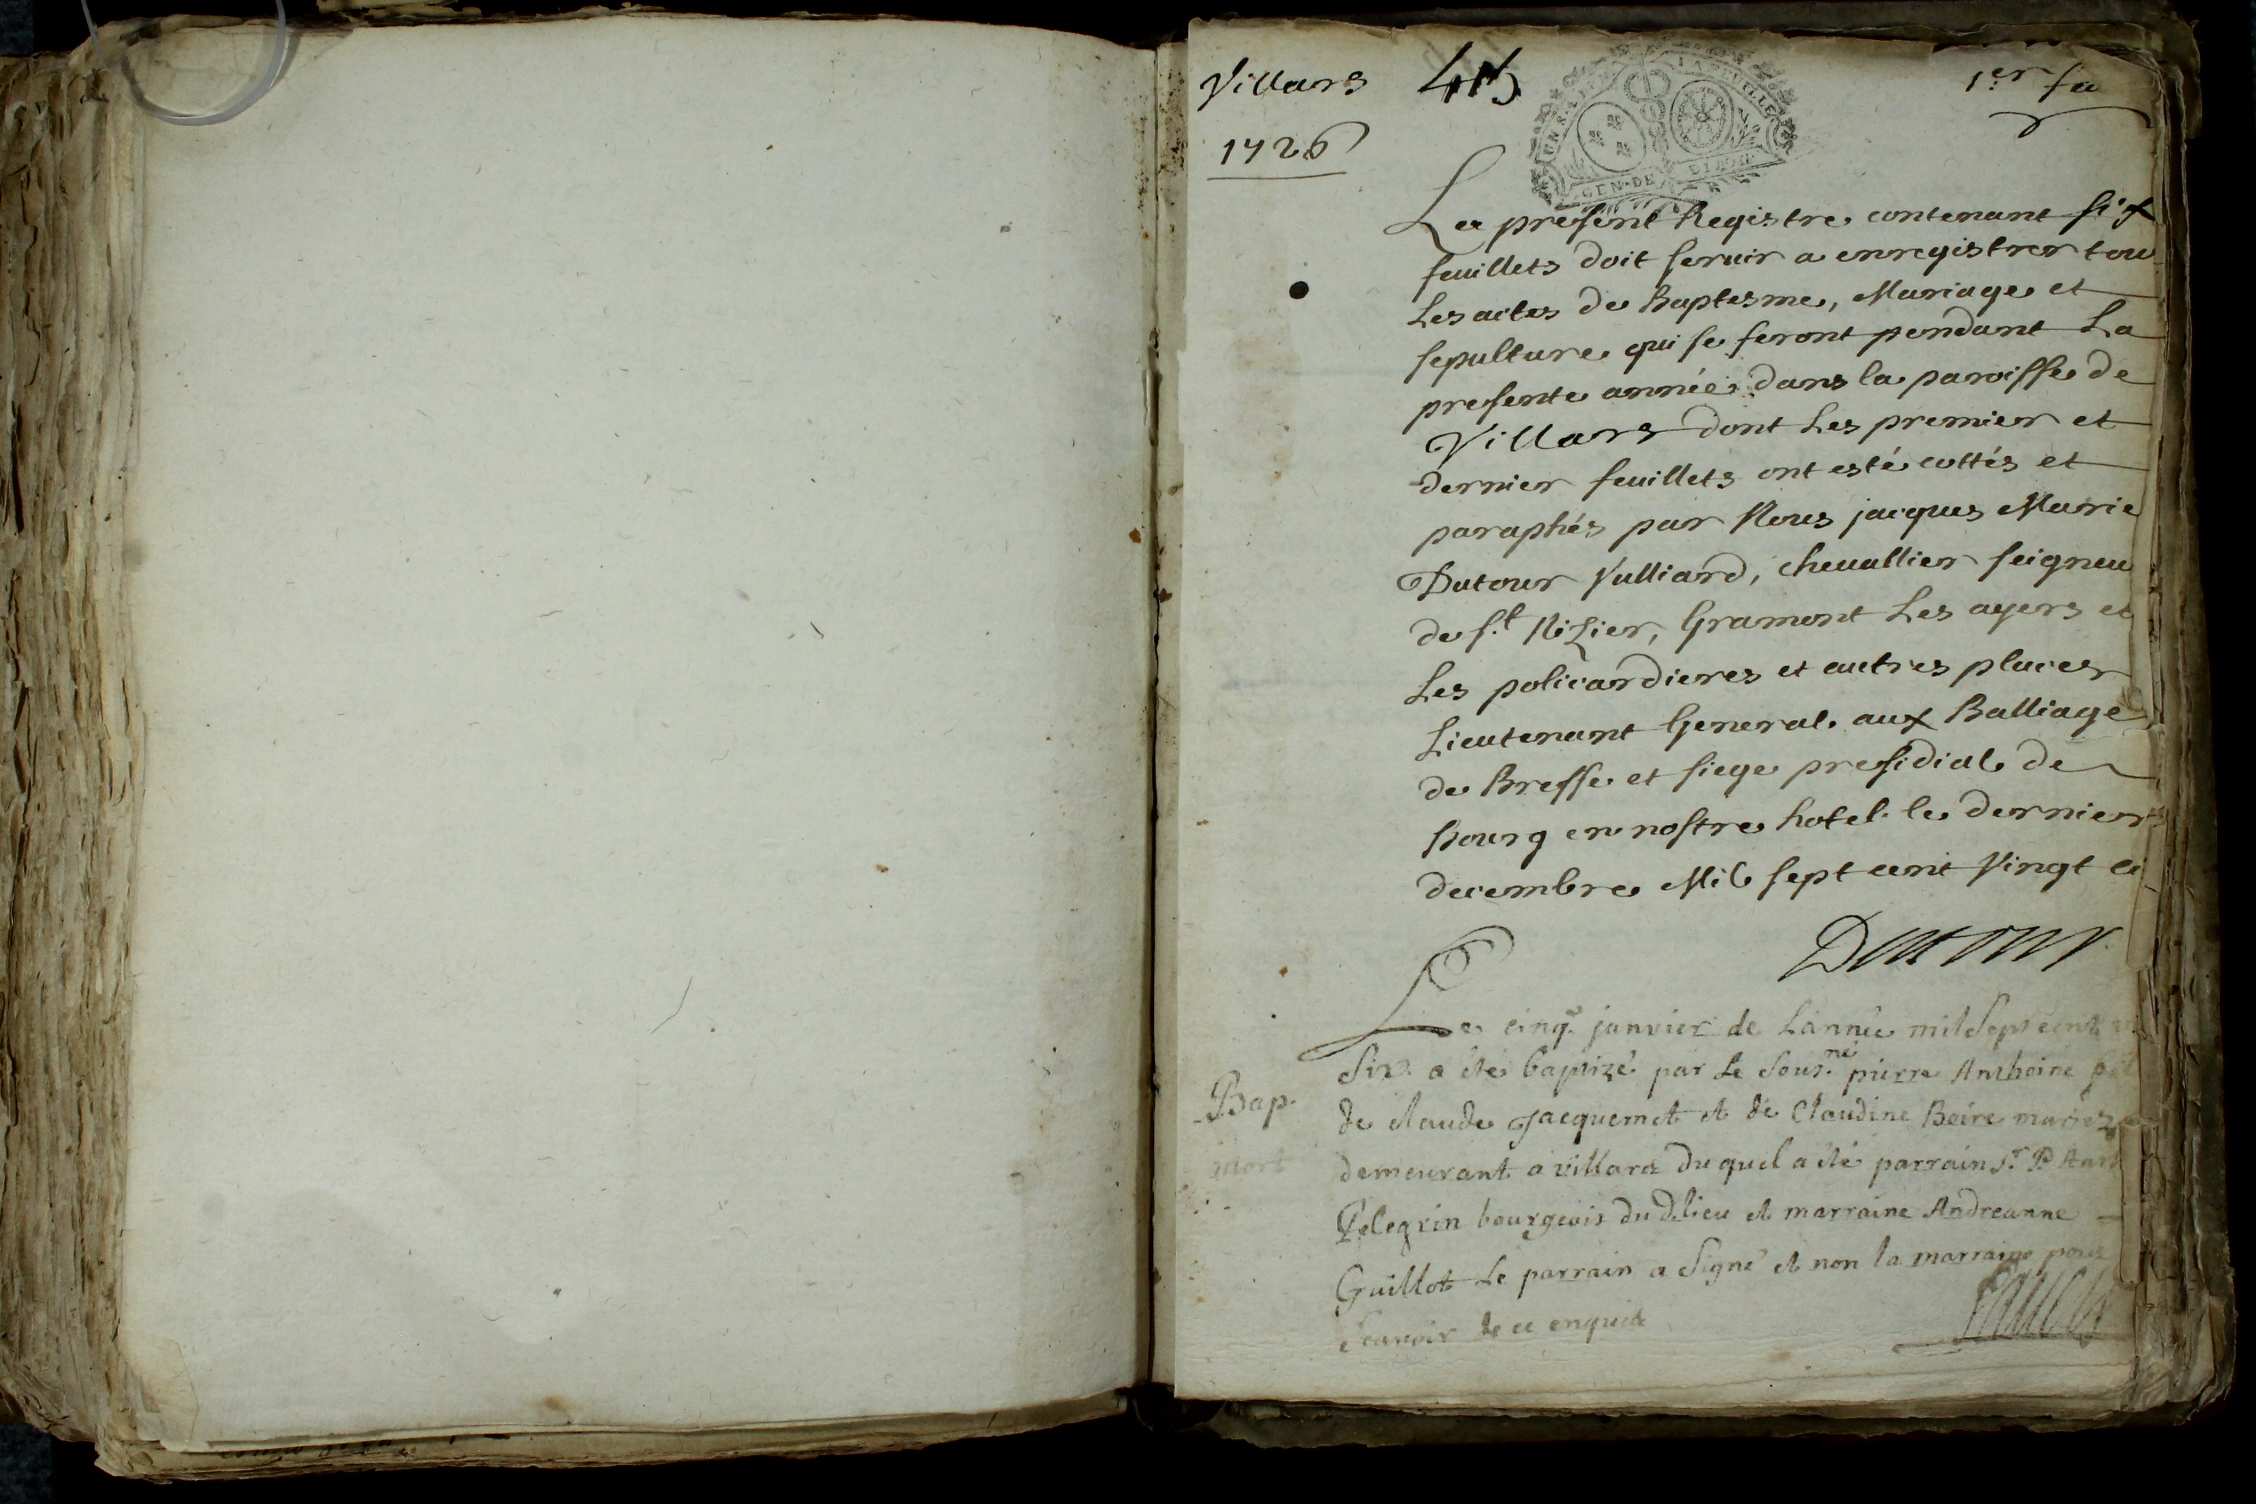 Villars
1726
1er fe
UN S. LA FEUILLE
GEN. DE DIJON
Le present Registre contenant six
feuillets doit seruir a enregistrer tou
Les actes de Baptesme, Mariage et
sepulture qui se feront pendant La
presente année dans la paroisse de
Villars dont Les premier et
dernier feuillets ont esté cottés et
paraphés par Nous jacques Marie
Dutour Vulliard, cheuallier seigneu
de s.t Nizier, Gramont Les ayers et
Les policardieres et autres places
Lieutenant General aux Balliage
de Bresse et siege presidial de
Bourg en nostre hotel le dernier
decembre Mil sept cent Vingt ci
Dutour
Le cinq.e janvier de Lannée mil Sept cent
Six a été baptizé par Le Sous.né pierre Anthoine
Bap.
de claude Jacquemet et de Claudine Beire mariez
mort
demeurant a villars du quel a été parrain s.r P Ant
Pelegrin bourgeois dud. lieu et marraine Andreanne
Guillot Le parrain a Signé et non la marraine pour
Scavoir de ce enquite